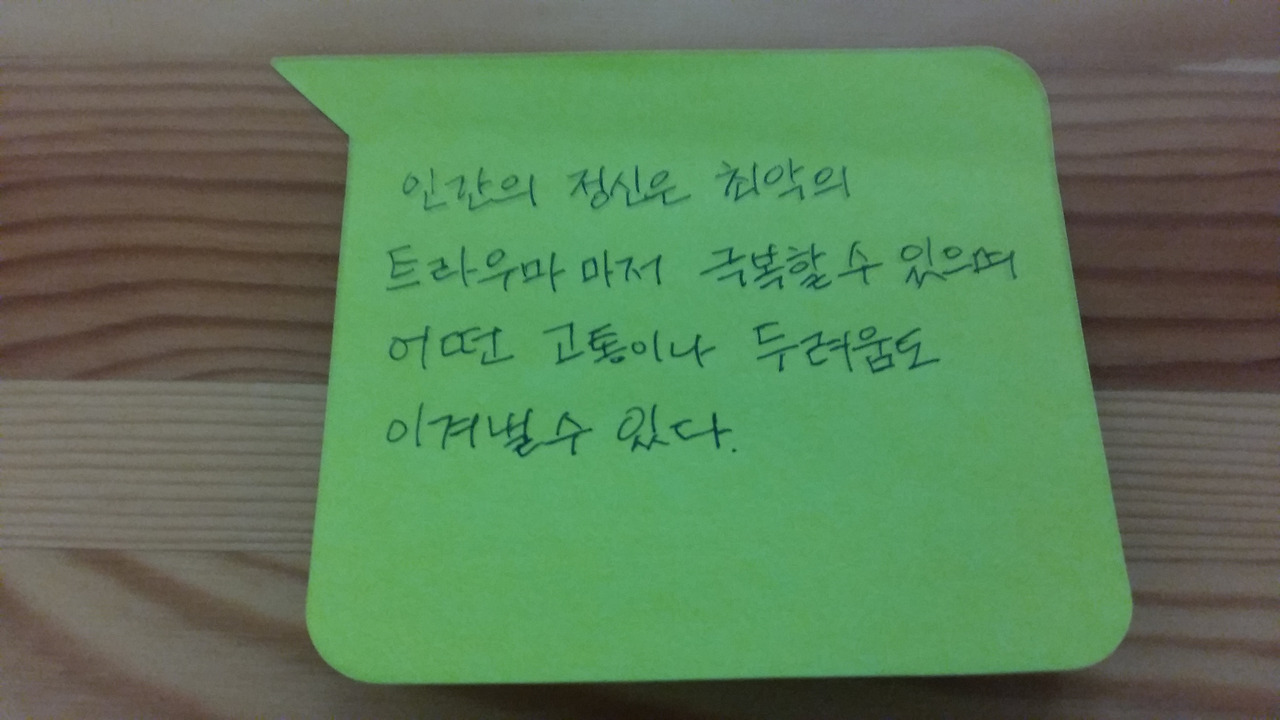 인간의 정신은 최악의
트라우마 마저 극복할 수 있으며
어떤 고통이나 두려움도
이겨낼 수 있다.